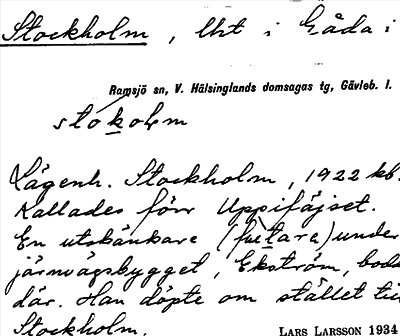 Stockholm, lht i Gåda i
Ramsjö sn, V. Hälsinglands domsagas tg, Gävleb. l.
stokolm
Lägenh. Stockholm, 1922 kb.
Kallades förr Uppifäjset.
En utskänkare (futtara) under
järnvägsbygget, Ekström, bodd
där. Han döpte om stället till
Stockholm.
LARS LARSSON 1934